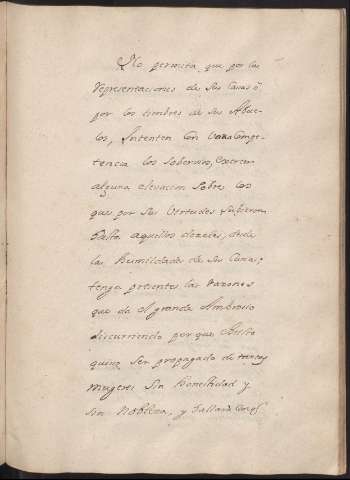 No permita, que por las
representaciones de sus Casas ò
por los timbres de sus Abue-
los, Intenten con vana Compe-
tencia los sobervios, exercer
alguna elevacion sobre los
que por sus Virtudes subieron
hasta aquellos doseles, desde
las humildades de sus Cunas;
tenga presentes las razones
que da el grande Ambrosio
discurriendo por que Christo
quiso ser propagado de
mugeres sin honestidad y
sin Nobleza, y hallara